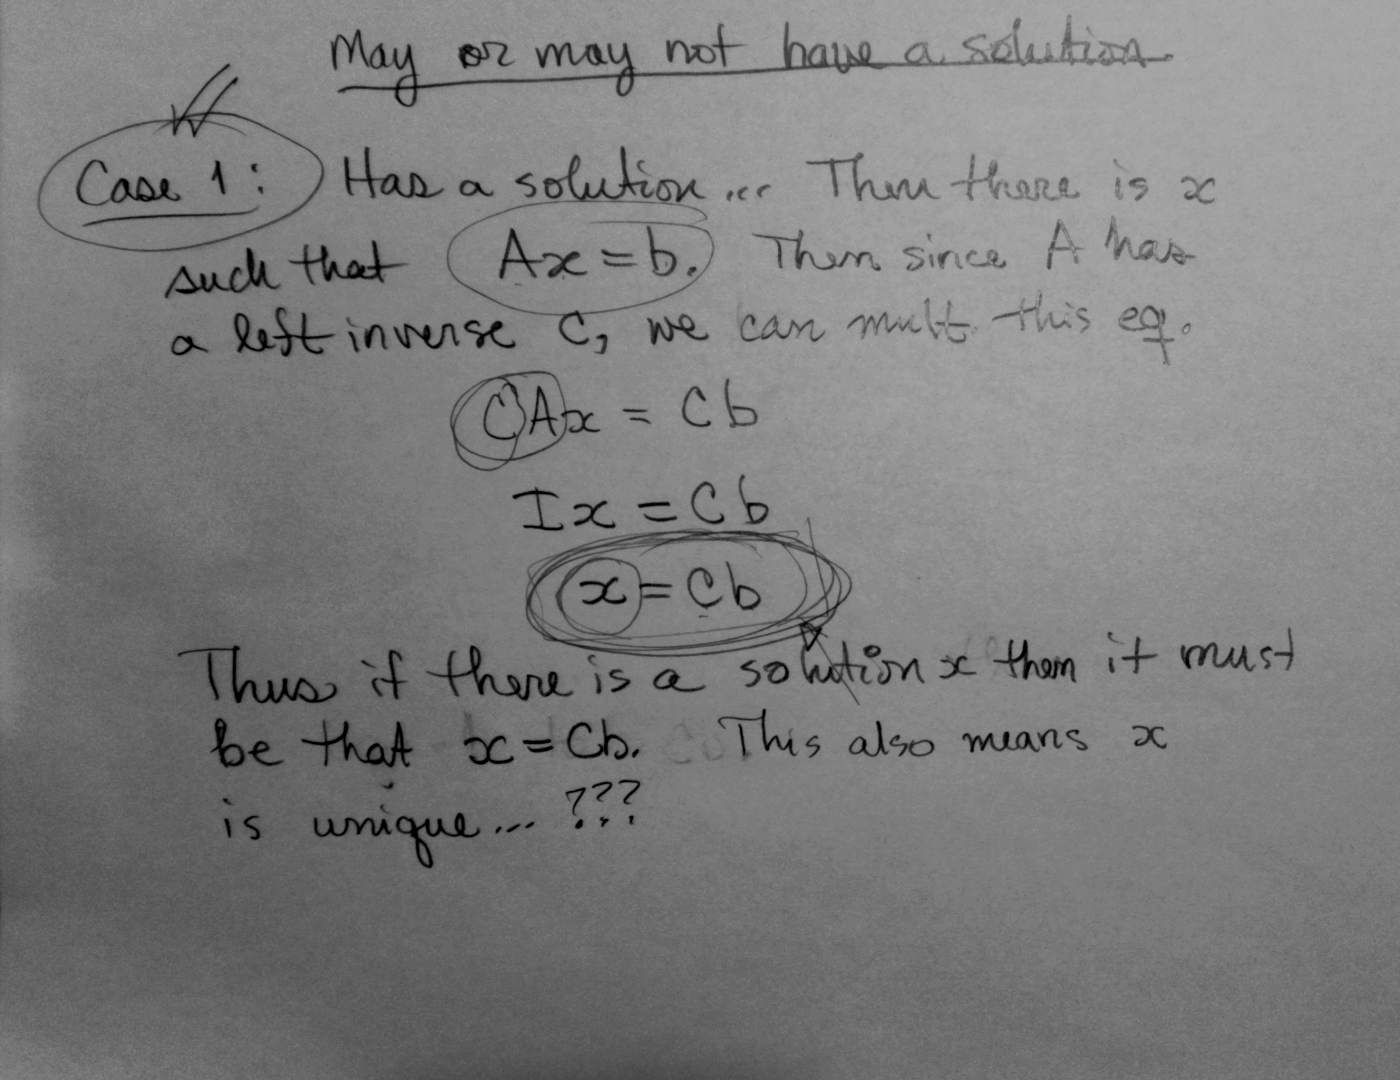 May or may not have a solution
Case 1: Has a solution... Then there is x
such that Ax = b. Then since A has
a left inverse C, we can mult. this eq.
CAx = Cb
Ix = Cb
x = Cb
Thus if there is a solution x then it must
be that x = Cb. This also means x
is unique... ???